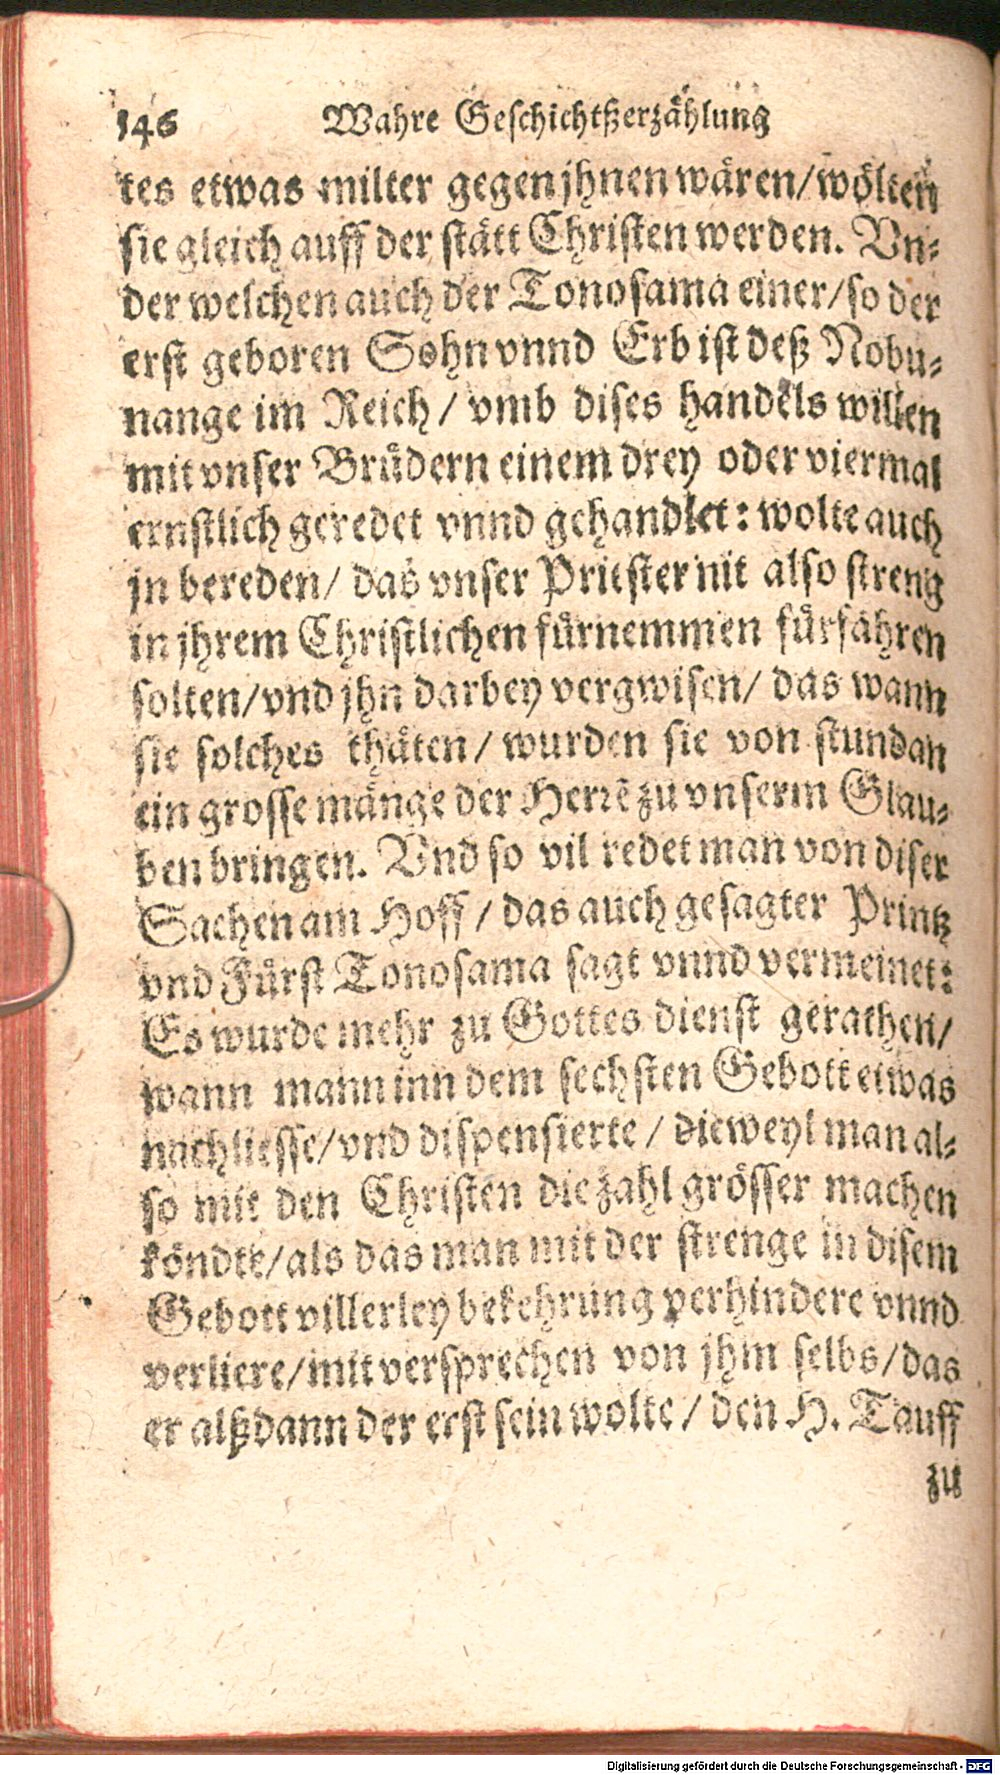 146 Wahre Geschichtßerzählung
tes etwas milter gegen jhnen wären/wölten
sie gleich auff der stätt Christen werden. Vn-
der welchen auch der Tonosama einer/so der
erst geboren Sohn vnnd Erb ist deß Nobu-
nange im Reich/ vmb dises handels willen
mit vnser Brüdern einem drey oder viermal
ernstlich geredet vnnd gehandlet: wolte auch
jn bereden/ das vnser Priester nit also streng
in jhrem Christlichen fürnemmen fürfahren
solten/vnd jhn darbey vergwisen/ das wann
sie solches thäten/ wurden sie von stundan
ein grosse mänge der Herrē zu vnserm Glau-
ben bringen. Vnd so vil redet man von diser
Sachen am Hoff/ das auch gesagter Printz
vnd Fürst Tonosama sagt vnnd vermeinet:
Es wurde mehr zu Gottes dienst gerathen/
wann mann inn dem sechsten Gebott etwas
nachliesse/vnd dispensierte/ dieweyl man al-
so mit den Christen die zahl grösser machen
köndte/als das man mit der strenge in disem
Gebott villerley bekehrung verhindere vnnd
verliere/mit versprechen von jhm selbs/das
er alßdann der erst sein wolte/ den H. Tauff
zu
Digitalisierung gefördert durch die Deutsche Forschungsgemeinschaft - DFG